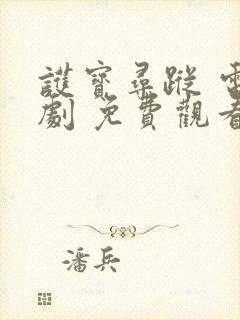 護寶尋蹤 電
劇 免費觀看
潘兵